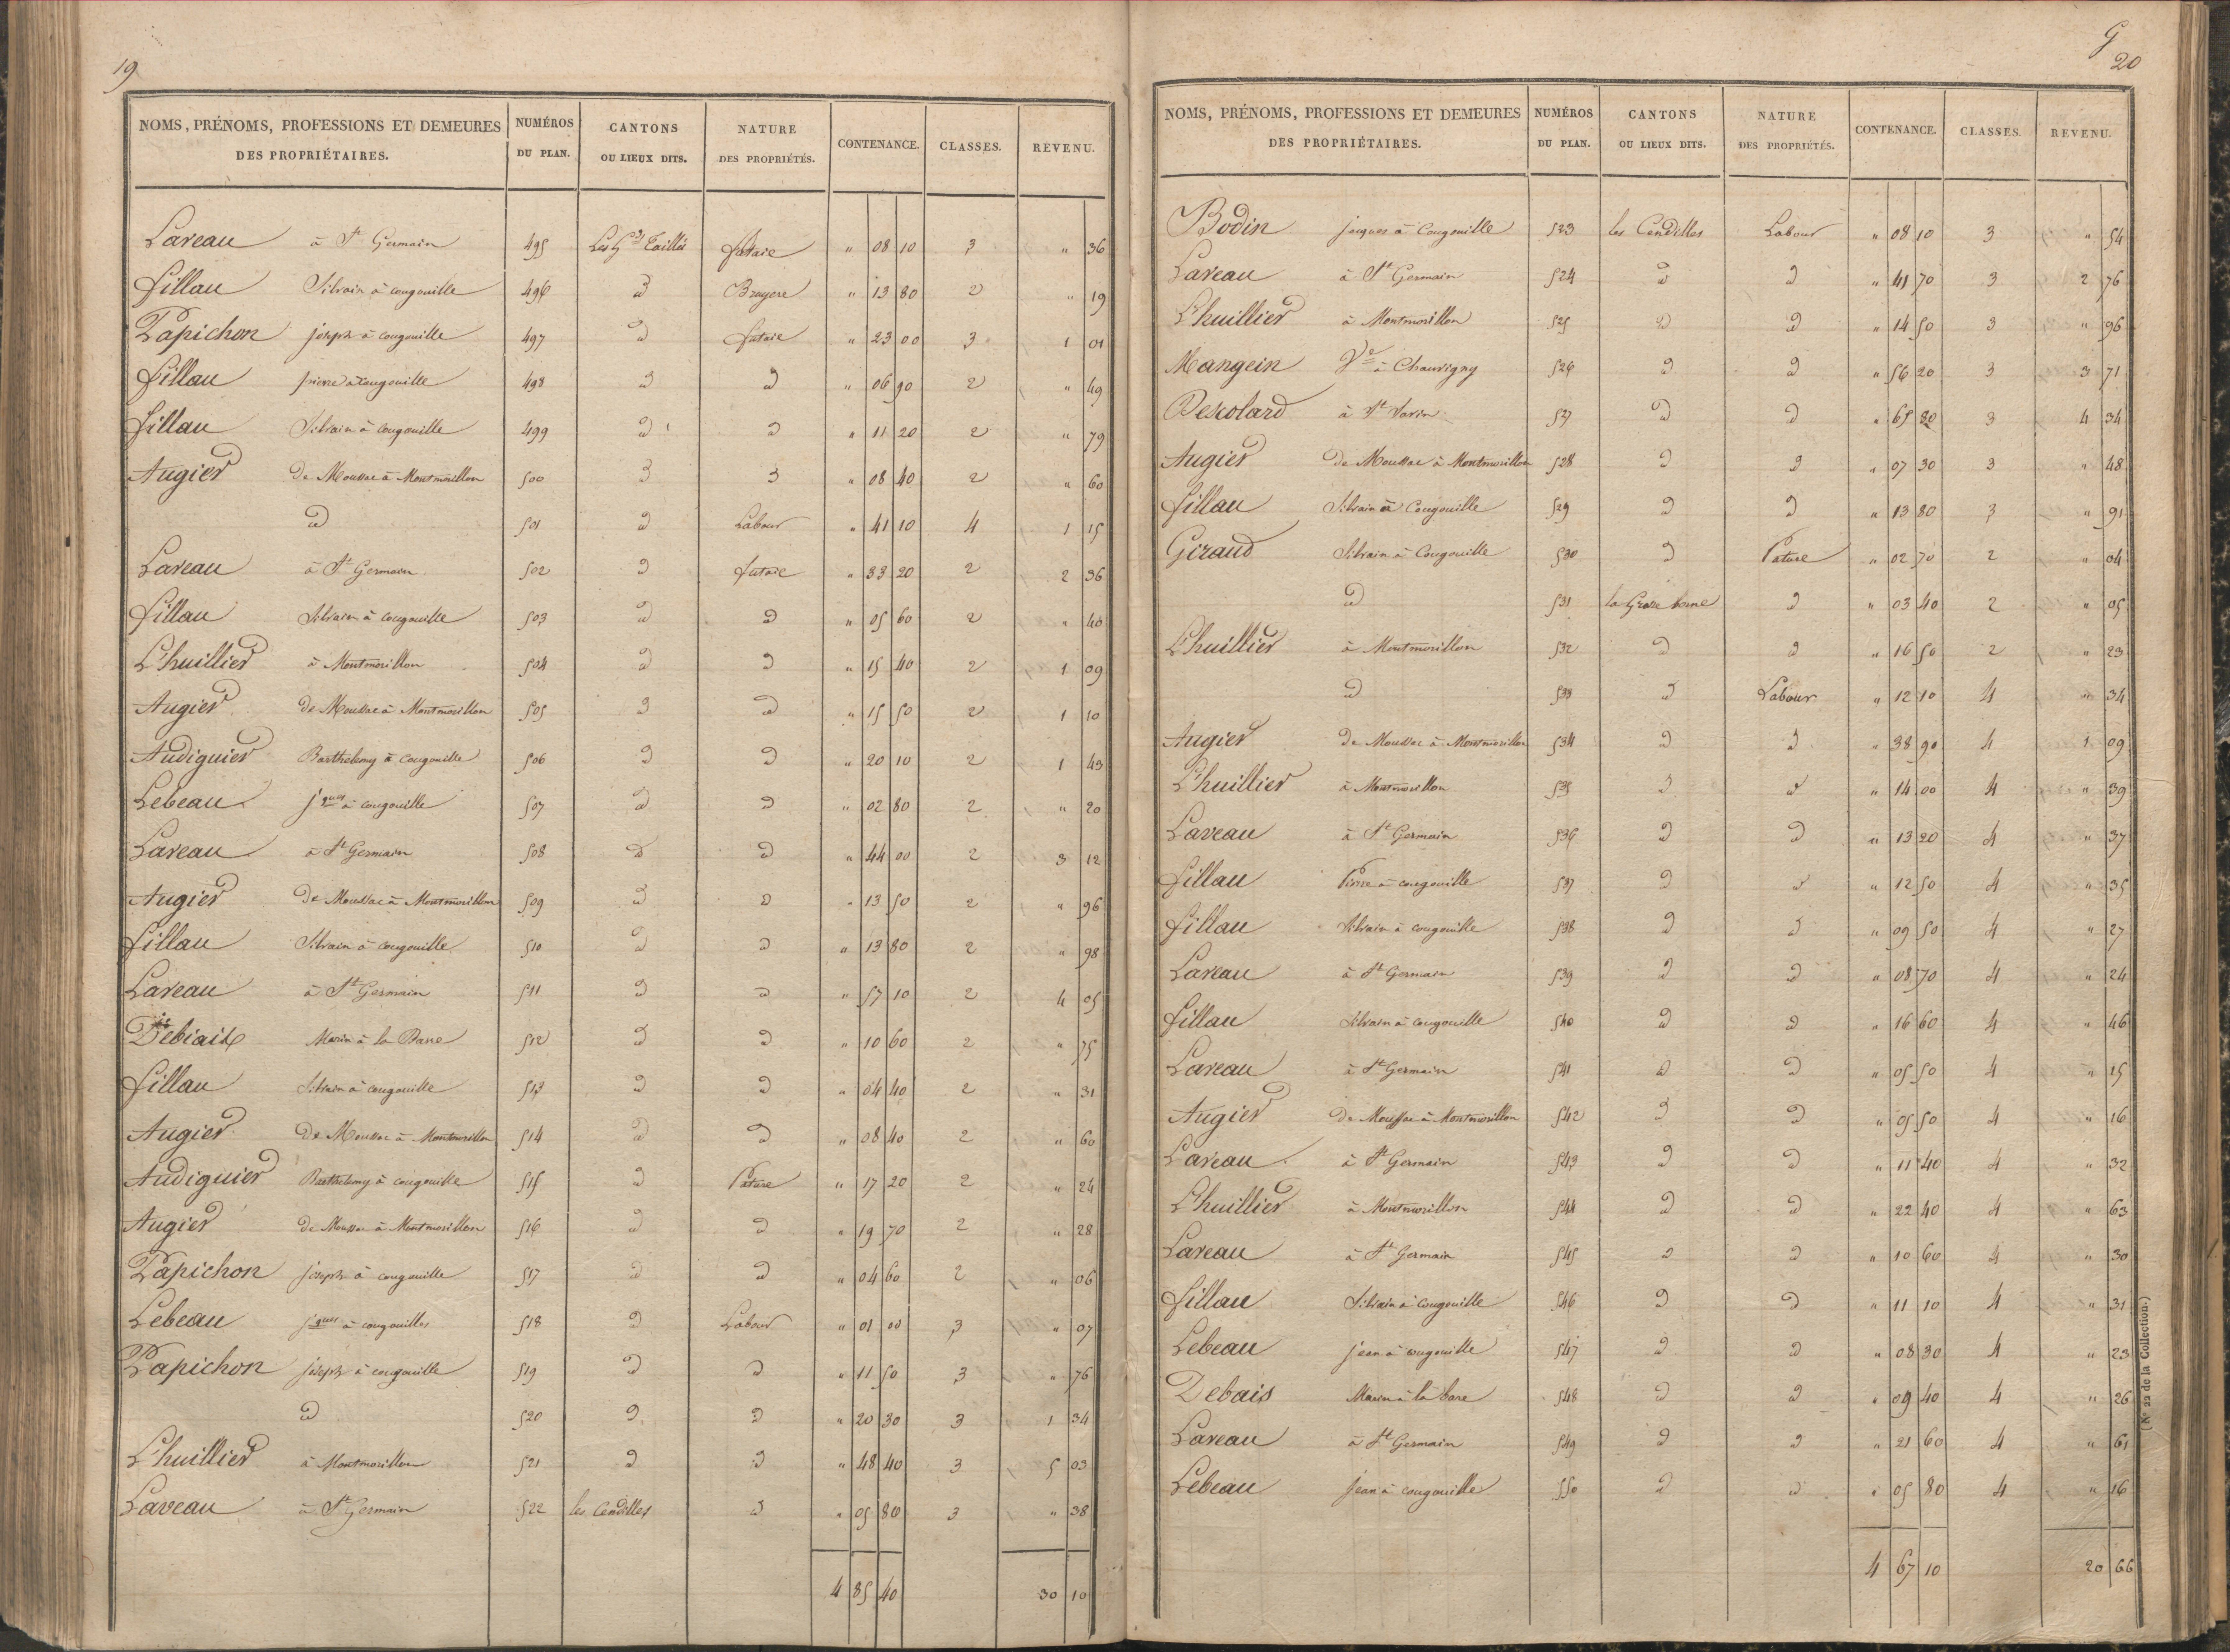 19
NOMS, PRÉNOMS, PROFESSIONS ET DEMEURES DES PROPRIÉTAIRES. NUMÉROS DU PLAN. CANTONS OU LIEUX DITS. NATURE DES PROPRIÉTÉS. CONTENANCE. CLASSES. REVENU.
Laveau à St Germain 495 Les Gdes Tailles futaie " 08 10 3 " 36
fillau Silvain à cougouille 496 d Bruyere " 13 80 2 " 19
Papichon joseph à cougouille 497 d futaie " 23 00 3 1 01
fillau pierre à cougouille 498 d d " 06 90 2 " 49
fillau Silvain à cougouille 499 d d " 11 20 2 " 79
Augier de Moussac à Montmorillon 500 d d " 08 40 2 " 60
d 501 d Labour " 41 10 4 1 15
Laveau à St Germain 502 d futaie " 33 20 2 2 36
fillau Silvain à cougouille 503 d d " 05 60 2 " 40
L'huillier à Montmorillon 504 d d " 15 40 2 1 09
Augier de Moussac à Montmorillon 505 d d " 15 50 2 1 10
Audiguier Barthelemy à cougouille 506 d d " 20 10 2 1 43
Lebeau jques à cougouille 507 d d " 02 80 2 " 20
Laveau à St Germain 508 d d " 44 00 2 3 12
Augier de Moussac à Montmorillon 509 d d " 13 50 2 " 96
fillau Silvain à cougouille 510 d d " 13 80 2 " 98
Laveau à St Germain 511 d d " 57 10 2 4 05
Debiais Marin à la Barre 512 d d " 10 60 2 " 75
fillau Silvain à cougouille 513 d d " 04 40 2 " 31
Augier de Moussac à Montmorillon 514 d d " 08 40 2 " 60
Audiguier Barthelemy à cougouille 515 d Pature " 17 20 2 " 24
Augier de Moussac à Montmorillon 516 d d " 19 70 2 " 28
Papichon joseph à cougouille 517 d d " 04 60 2 " 06
Lebeau jques à cougouilles 518 d Labour " 01 00 3 " 07
Papichon joseph à cougouille 519 d d " 11 50 3 " 76
d 520 d d " 20 30 3 1 34
L'huillier à Montmorillon 521 d d " 48 40 3 5 03
Laveau à St Germain 522 les Cendilles d " 05 80 3 " 38
4 85 40 30 10
G
20
NOMS, PRÉNOMS, PROFESSIONS ET DEMEURES DES PROPRIÉTAIRES. NUMÉROS DU PLAN. CANTONS OU LIEUX DITS. NATURE DES PROPRIÉTÉS. CONTENANCE. CLASSES. REVENU.
Bodin jacques à Cougouille 523 les Cendilles Labour " 08 10 3 " 54
Laveau à St Germain 524 d d " 41 70 3 2 76
L'huillier à Montmorillon 525 d d " 14 50 3 " 96
Mangein Ve à Chauvigny 526 d d " 56 20 3 3 71
Descolard à St Savin 527 d d " 65 80 3 4 34
Augier de Moussac à Montmorillon 528 d d " 07 30 3 " 48
fillau Silvain à Cougouille 529 d d " 13 80 3 " 91
Giraud Silvain à Cougouille 530 d Pature " 02 70 2 " 04
d 531 la Grosse borne d " 03 40 2 " 05
L'huillier à Montmorillon 532 d d " 16 50 2 " 23
d 533 d Labour " 12 10 4 " 34
Augier de Moussac à Montmorillon 534 d d " 38 90 4 1 09
L'huillier à Montmorillon 535 d d " 14 00 4 " 39
Laveau à St Germain 536 d d " 13 20 4 " 37
fillau Pierre à cougouille 537 d d " 12 50 4 " 35
fillau Silvain à cougouille 538 d d " 09 50 4 " 27
Laveau à St Germain 539 d d " 08 70 4 " 24
fillau Silvain à cougouille 540 d d " 16 60 4 " 46
Laveau à St Germain 541 d d " 05 50 4 " 15
Augier de Moussac à Montmorillon 542 d d " 05 50 4 " 16
Laveau à St Germain 543 d d " 11 40 4 " 32
L'huillier à Montmorillon 544 d d " 22 40 4 " 63
Laveau à St Germain 545 d d " 10 60 4 " 30
fillau Silvain à Cougouille 546 d d " 11 10 4 " 31
Lebeau jean à cougouille 547 d d " 08 30 4 " 23
Debais Marin à la bare 548 d d " 09 40 4 " 26
Laveau à St Germain 549 d d " 21 60 4 " 61
Lebeau jean à cougouille 550 d d " 05 80 4 " 16
4 67 10 20 66
(No 22 de la Collection.)